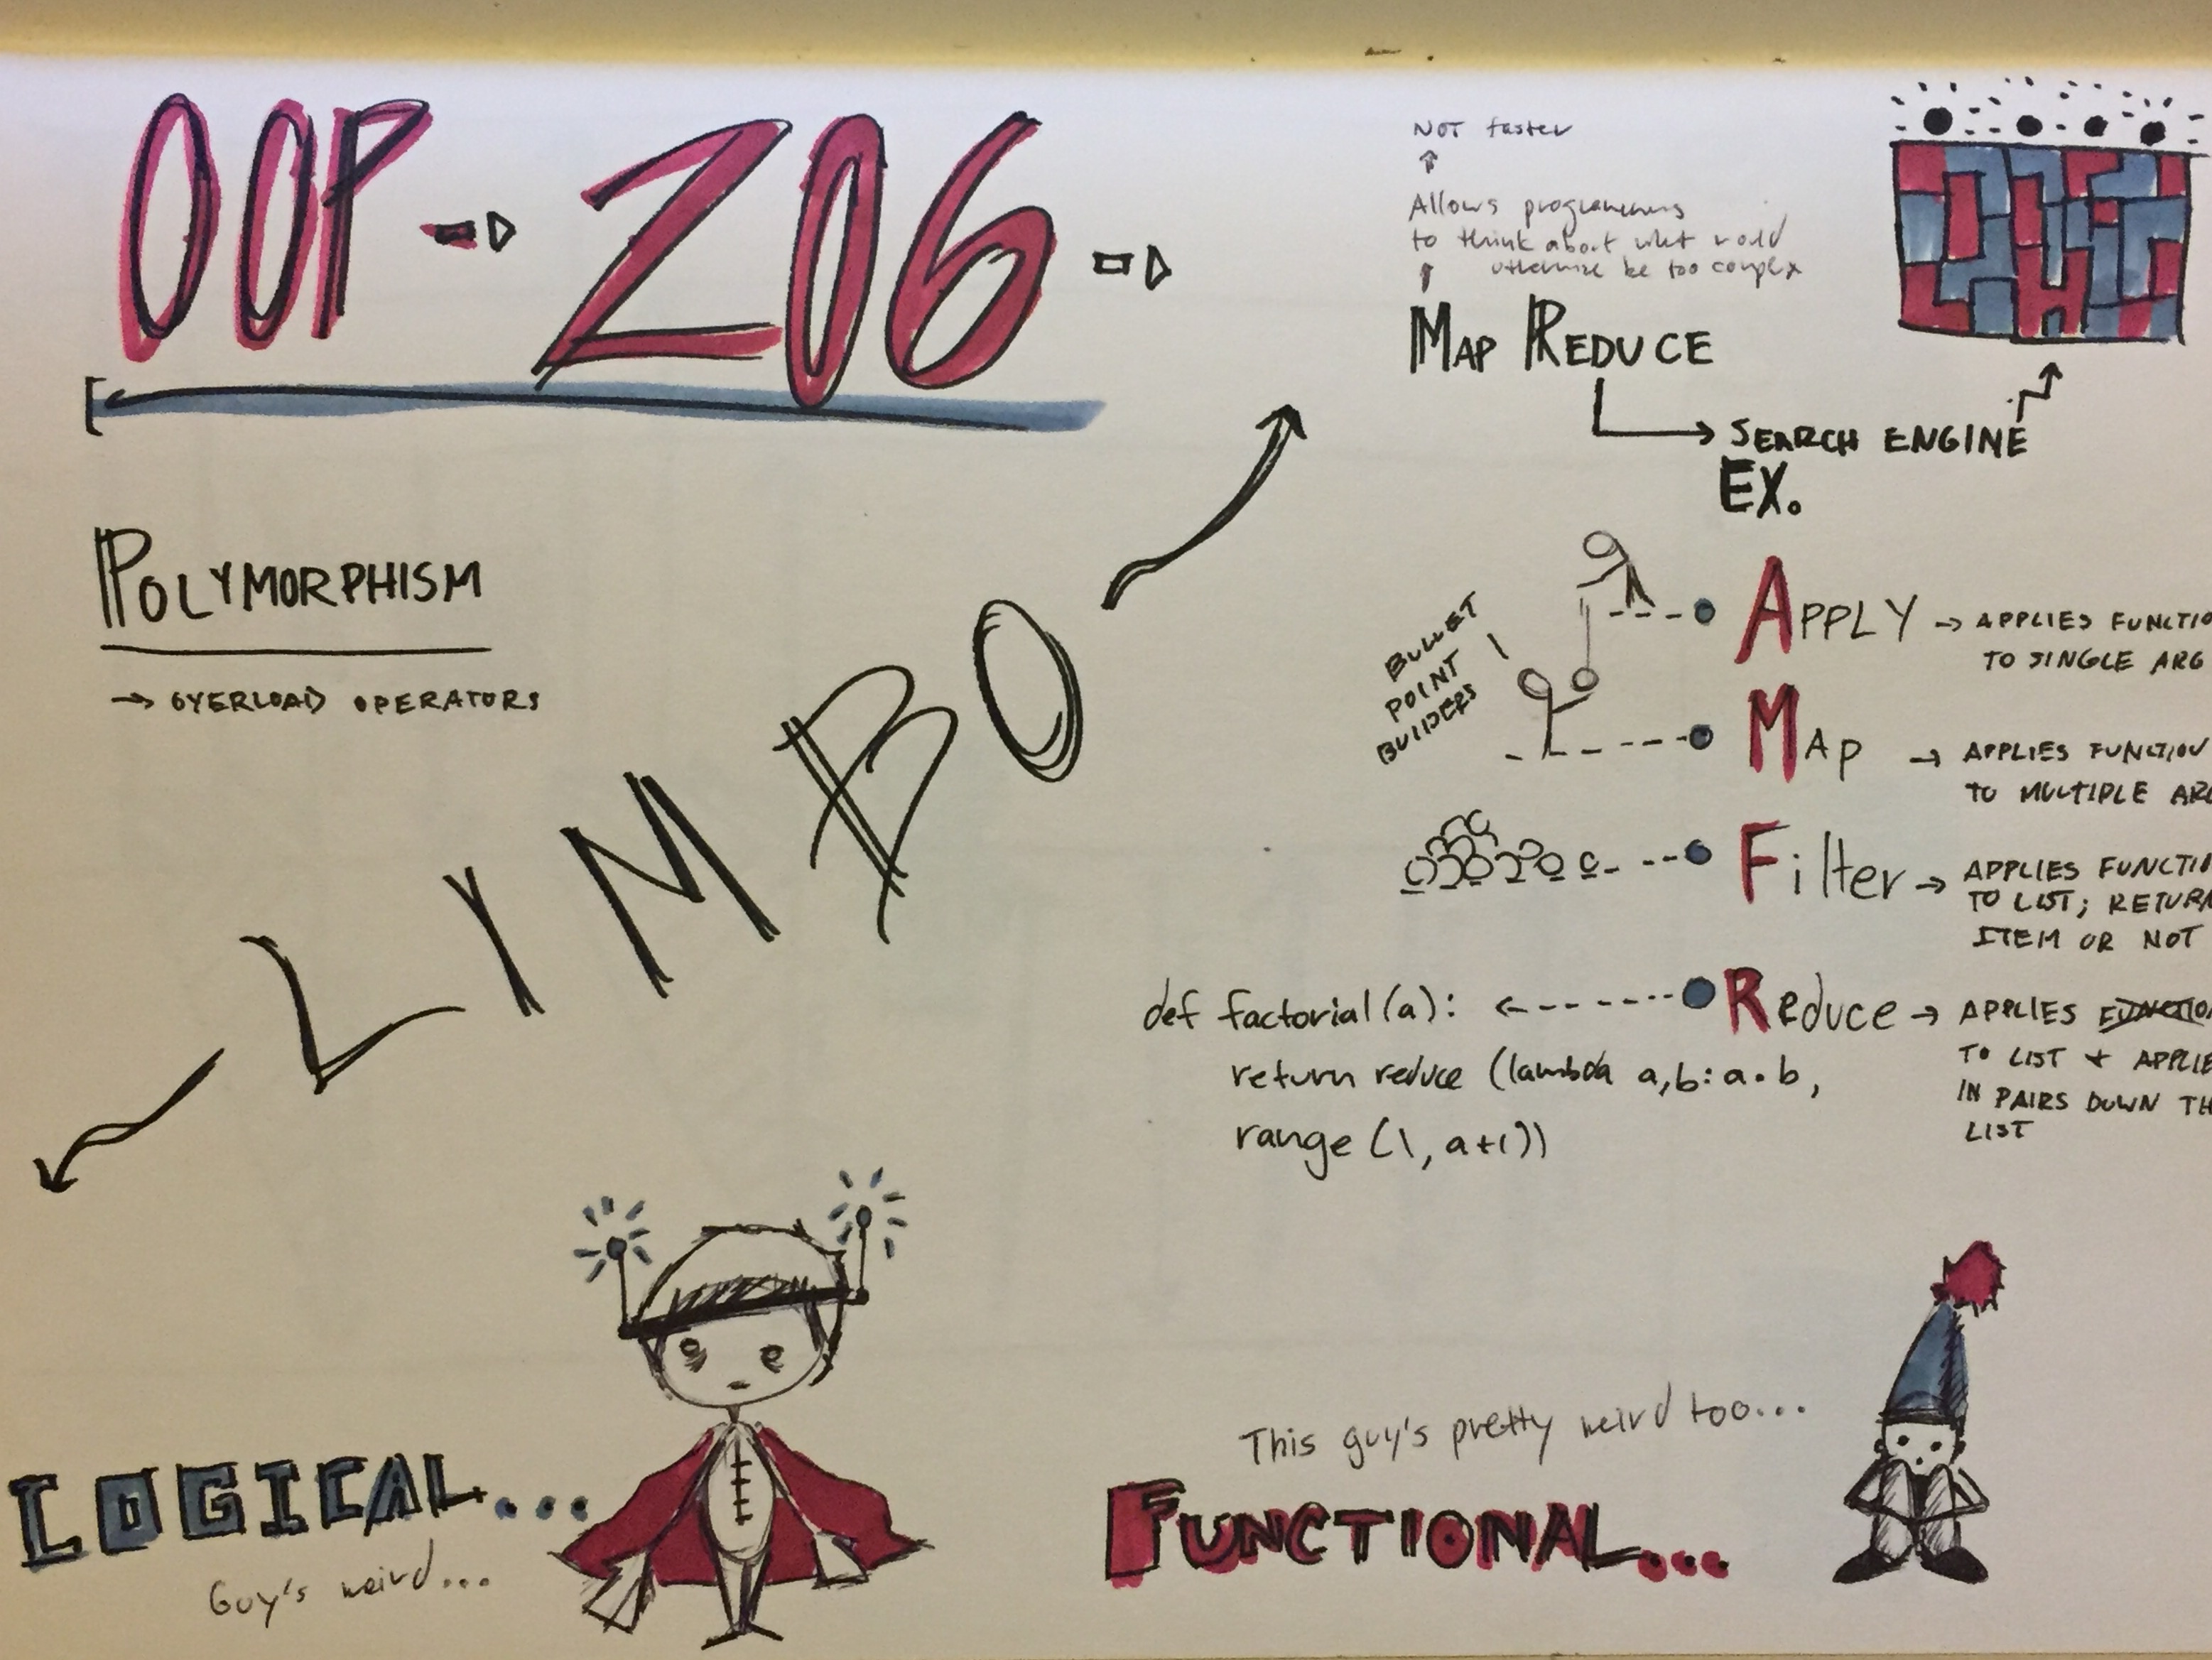 OOP 206
NOT faster
Allows programmers
to think about what would
otherwise be too complex
MAP REDUCE
SEARCH ENGINE
EX.
POLYMORPHISM
→ OVERLOAD OPERATORS
LIMBO
BULLET
POINT
BUILDERS
APPLY → APPLIES FUNCTIO
TO SINGLE ARG
MAP → APPLIES FUNCTION
TO MULTIPLE ARG
Filter → APPLIES FUNCTIO
TO LIST; RETURN
ITEM OR NOT
Reduce → APPLIES FUNCTION
TO LIST + APPLIE
IN PAIRS DOWN TH
LIST
def factorial(a):
return reduce (lambda a,b: a·b,
range (1, a+1))
LOGICAL...
Guy's weird...
This guy's pretty weird too...
FUNCTIONAL...